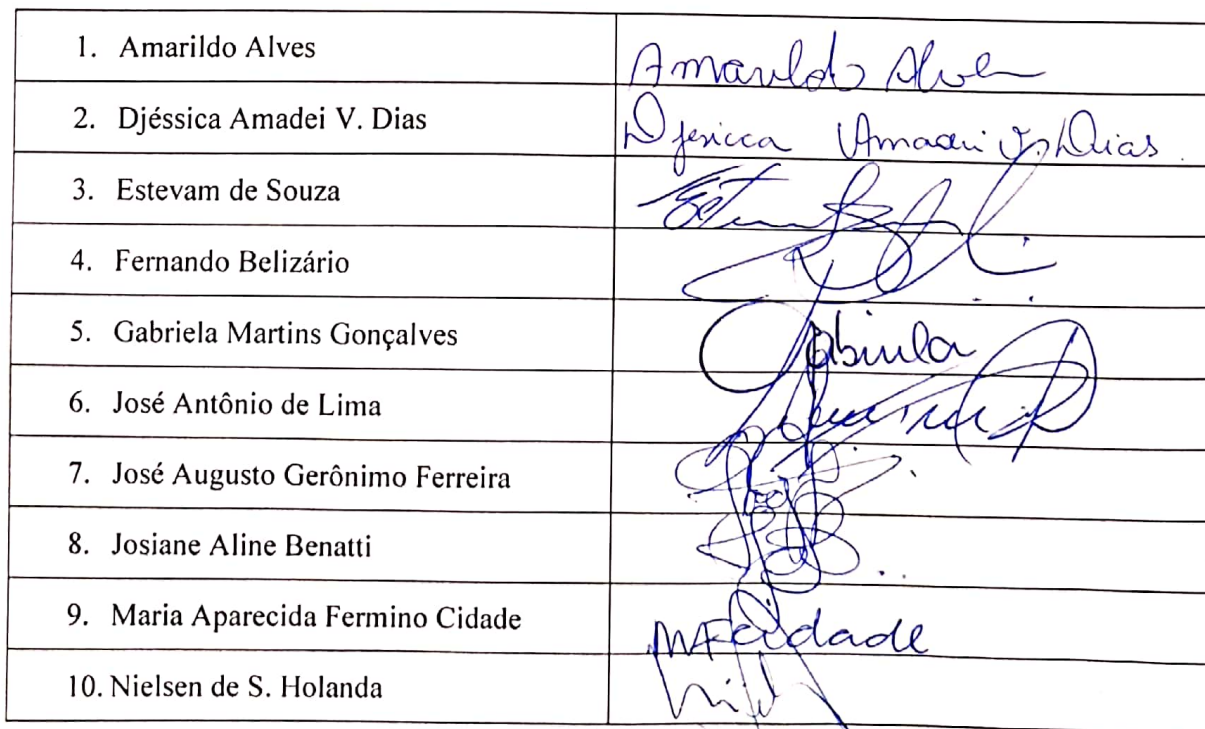 1. Amarildo Alves
Amarildo Alves
2. Djéssica Amadei V. Dias
Djessica Amadei V. Dias
3. Estevam de Souza
4. Fernando Belizário
5. Gabriela Martins Gonçalves
Gabriela
6. José Antônio de Lima
7. José Augusto Gerônimo Ferreira
8. Josiane Aline Benatti
9. Maria Aparecida Fermino Cidade
MAFCidade
10. Nielsen de S. Holanda